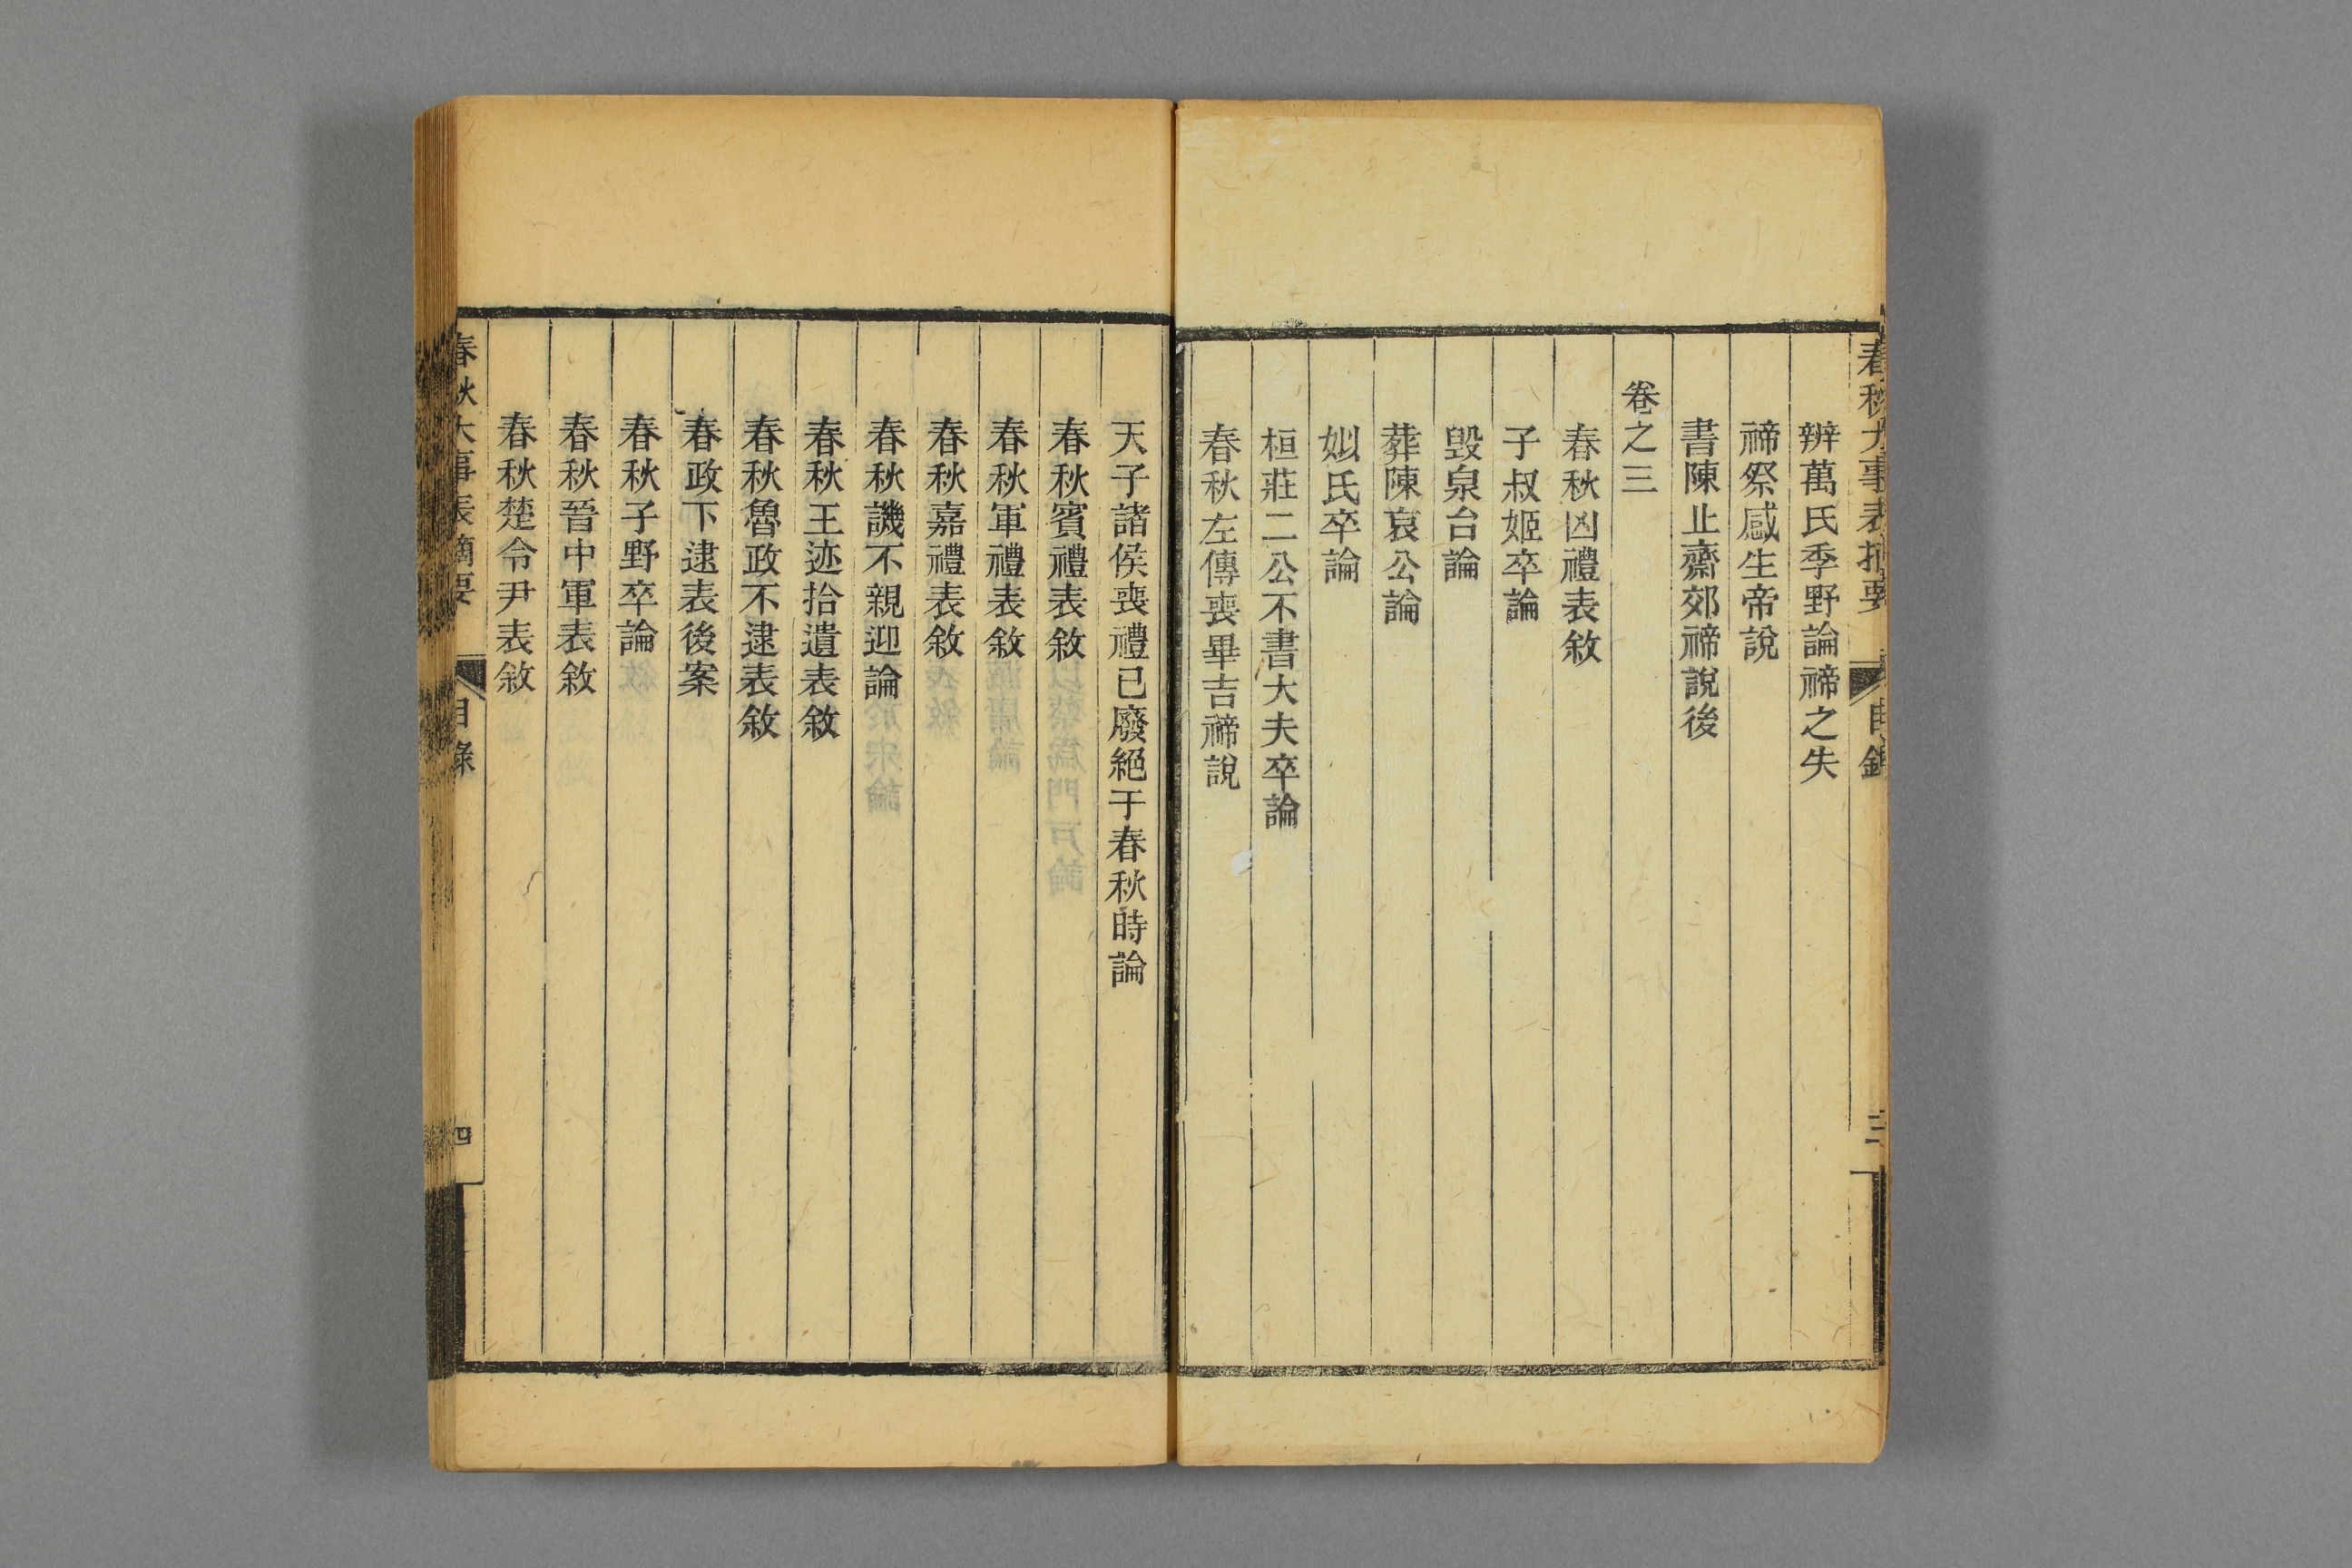 春秋大事表摘要 目錄 三
辨萬氏季野論禘之失
禘祭感生帝說
書陳止齋郊禘說後
卷之三
春秋凶禮表敘
子叔姬卒論
毀泉台論
葬陳哀公論
姒氏卒論
桓莊二公不書大夫卒論
春秋左傳喪畢吉禘說
天子諸侯喪禮已廢絕于春秋時論
春秋賓禮表敘
春秋軍禮表敘
春秋嘉禮表敘
春秋譏不親迎論
春秋王迹拾遺表敘
春秋魯政不逮表敘
春政下逮表後案
春秋子野卒論
春秋晉中軍表敘
春秋楚令尹表敘
春秋大事表摘要 目錄 四